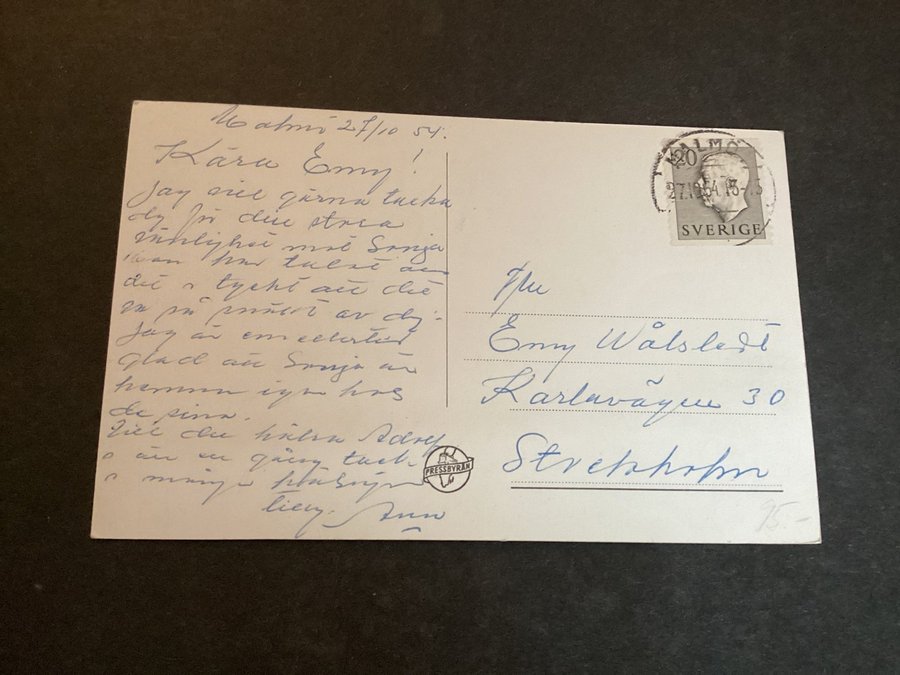 Malmö 27/10 54.
Kära Emy!
Jag vill gärna tacka
dig för din stora
vänlighet mot Sonja
Hon har talat om
det o tyckt att det
på av dig.
Jag är emellertid
glad att Sonja är
hemma igen hos
de sina.
Vill du hälsa Adolf
o än en gång tack
o många hälsningar
Ann
PRESSBYRÅN
MALMÖ 1
27.10.54.15-
20
SVERIGE
Fru
Emy Wålstedt
Karlavägen 30
Stockholm
75.-